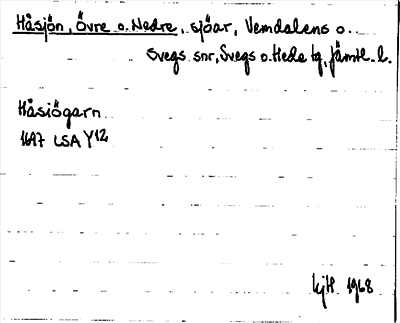 Håsjön, Övre o. Nedre, sjöar, Vemdalens o.
Svegs snr, Svegs o. Hede tg, Jämtl. l.
Håsiögarn
1697 LSA Y12
LjH. 1968